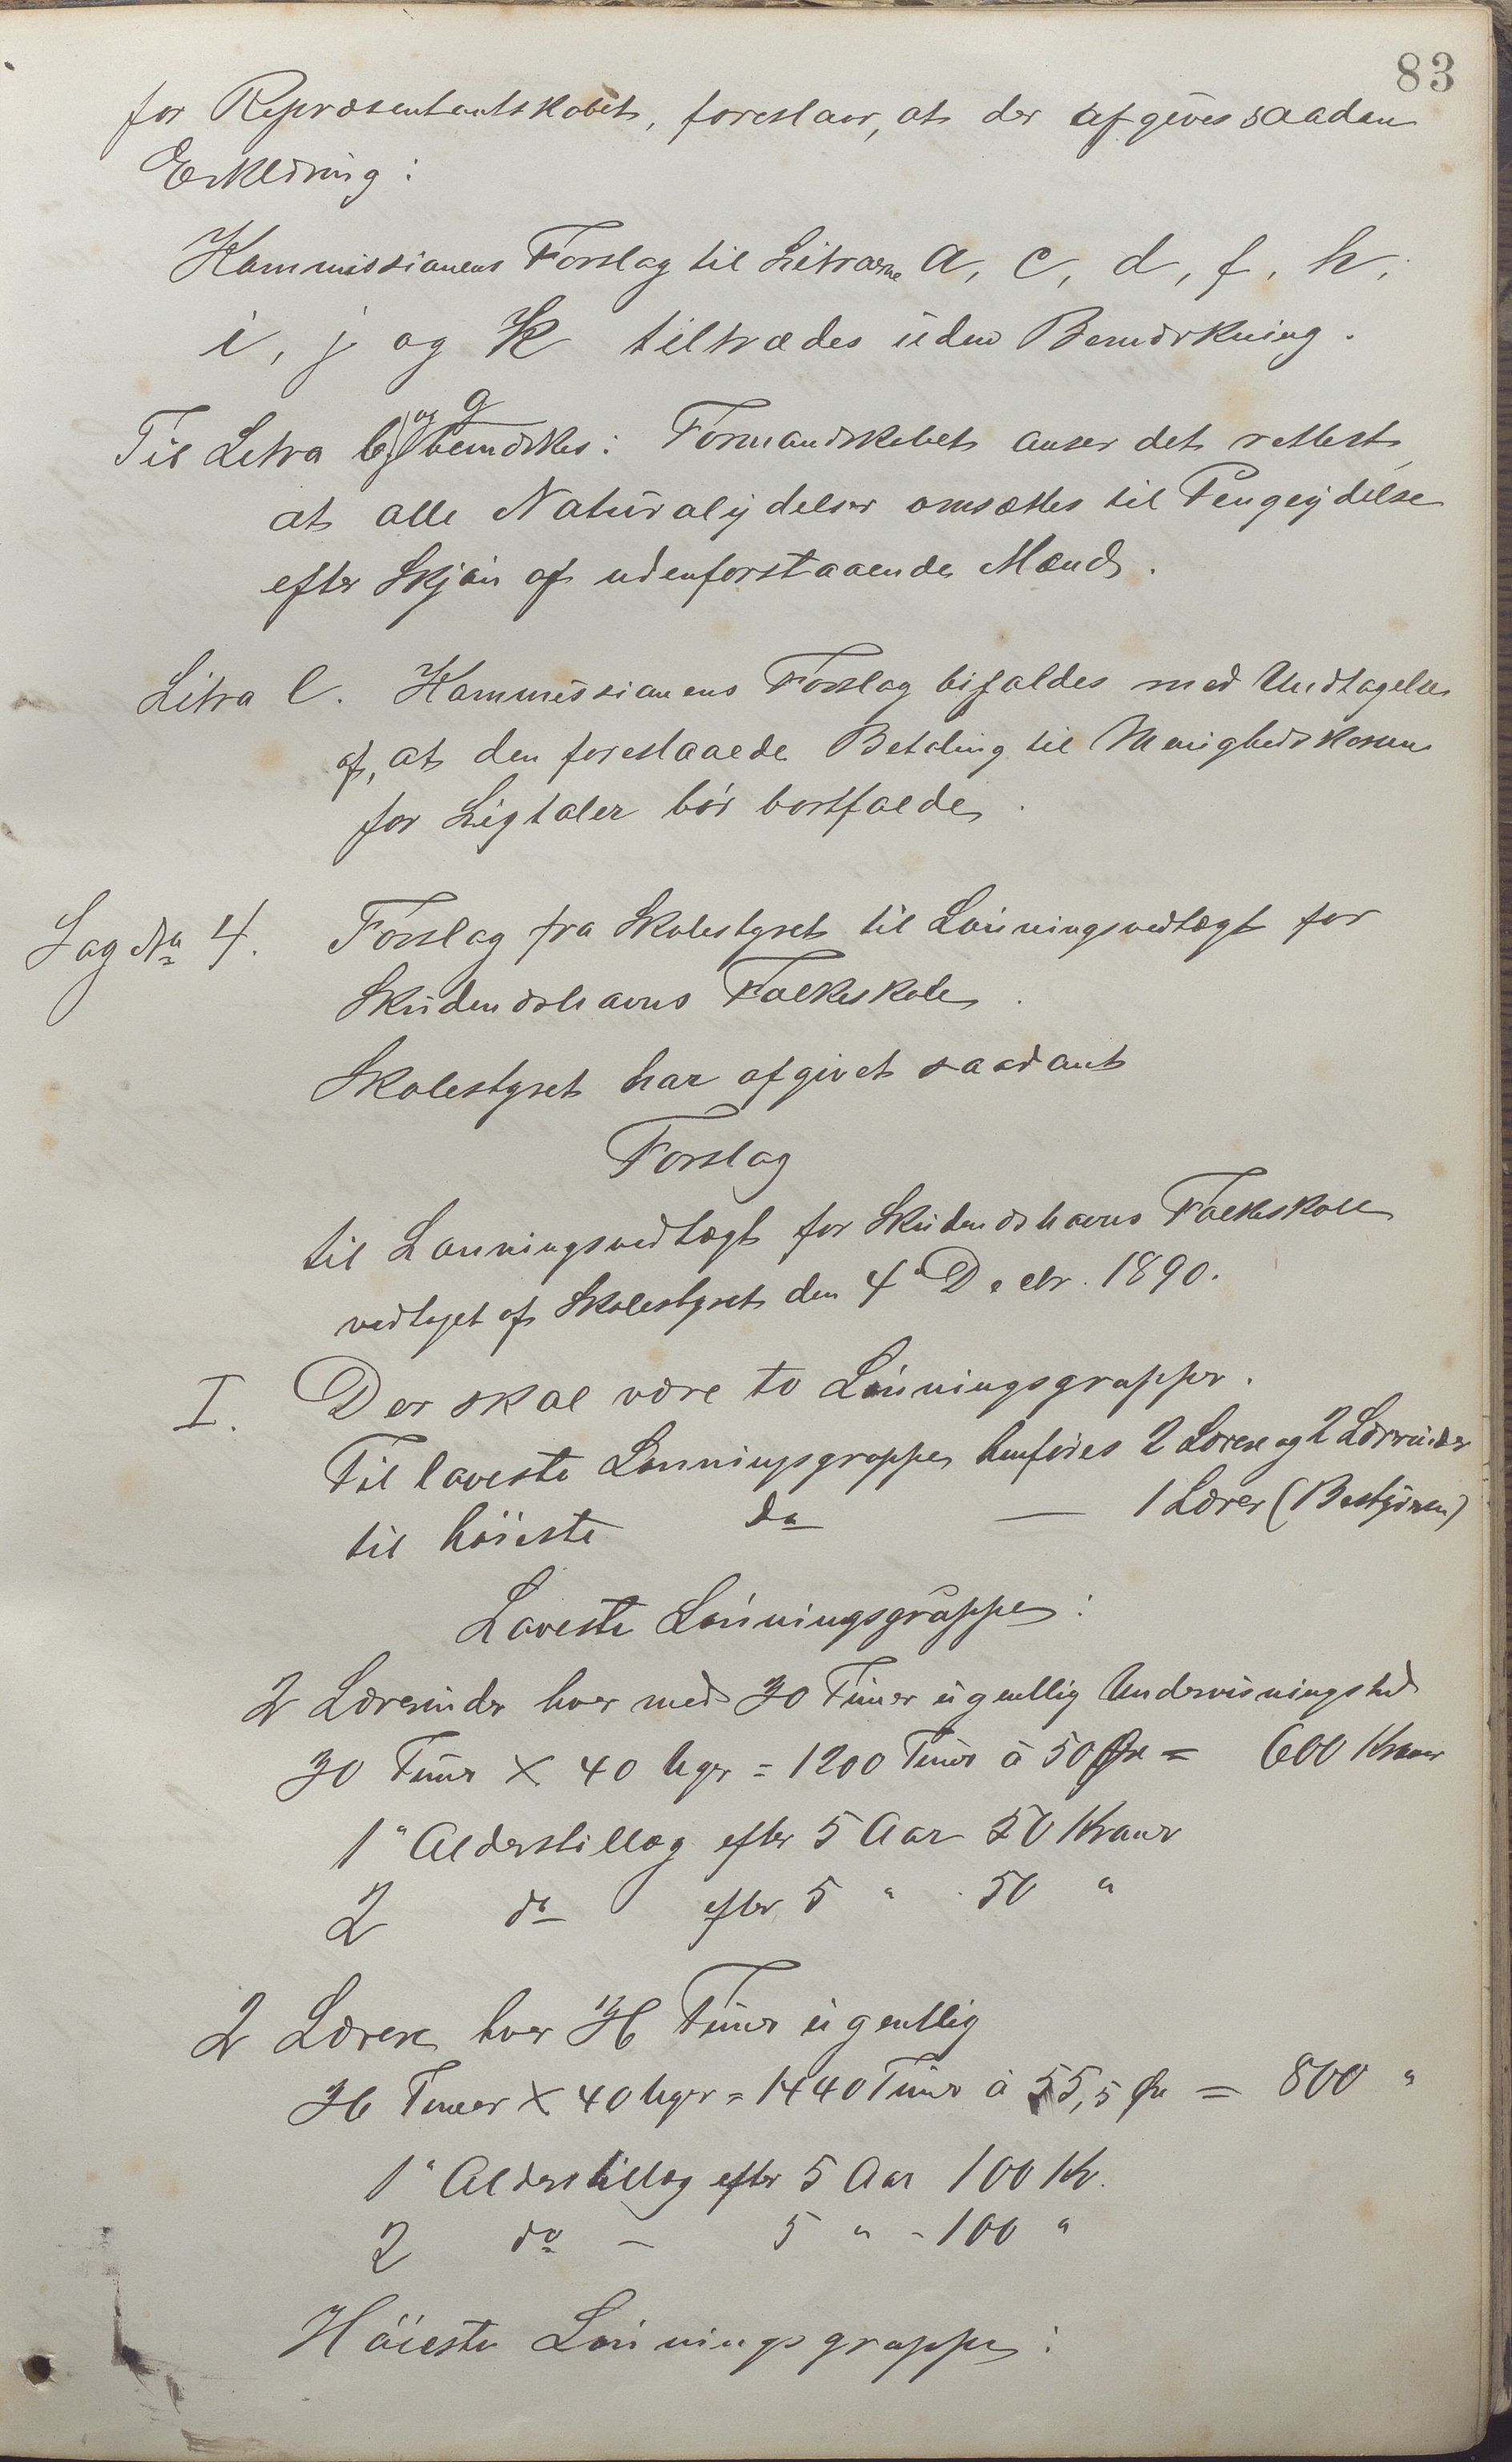 83
for Repræsentantskabet, foreslaar, at der afgives saadan
Erklæring:
Kommissionens Forslag til Litraerne a, c, d, f, h,
i, j og k tiltrædes uden Bemærkning.
Til Litra b og g bemærkes: Formandskabet anser det rettest,
at alle Naturalydelser omsættes til Pengeydelse
efter Skjøn af udenforstaaende Mænd.
Litra l. Kommissionens Forslag bifaldes med Undtagelse
af, at den foreslaaede Betaling til Menighedskassen
for Ligtaler bør bortfalde.
Sag No 4. Forslag fra Skolestyret til Lønningsvedtægt for
Skudeneshavns Folkeskole.
Skolestyret har afgivet saadant
Forslag
til Lønningsvedtægt for Skudeneshavns Folkeskole
vedtaget af Skolestyret den 4" Decbr. 1890.
I. Der skal være to Lønningsgrupper.
Til laveste Lønningsgruppe henføres 2 Lærere og 2 Lærerinder
til høieste do — 1 Lærer (Bestyreren)
Laveste Lønningsgruppe:
2 Lærerinder hver med 30 Timer ugentlig Undervisningstid
30 Timer × 40 Uger = 1200 Timer à 50 Øre = 600 Kroner
1" Alderstillæg efter 5 Aar 50 Kroner
2 do efter 5 " 50 "
2 Lærere hver 36 Timer ugentlig
36 Timer × 40 Uger = 1440 Timer à 55,5 Øre = 800 "
1" Alderstillæg efter 5 Aar 100 Kr.
2 do — 5 " - 100 "
Høieste Lønningsgruppe: